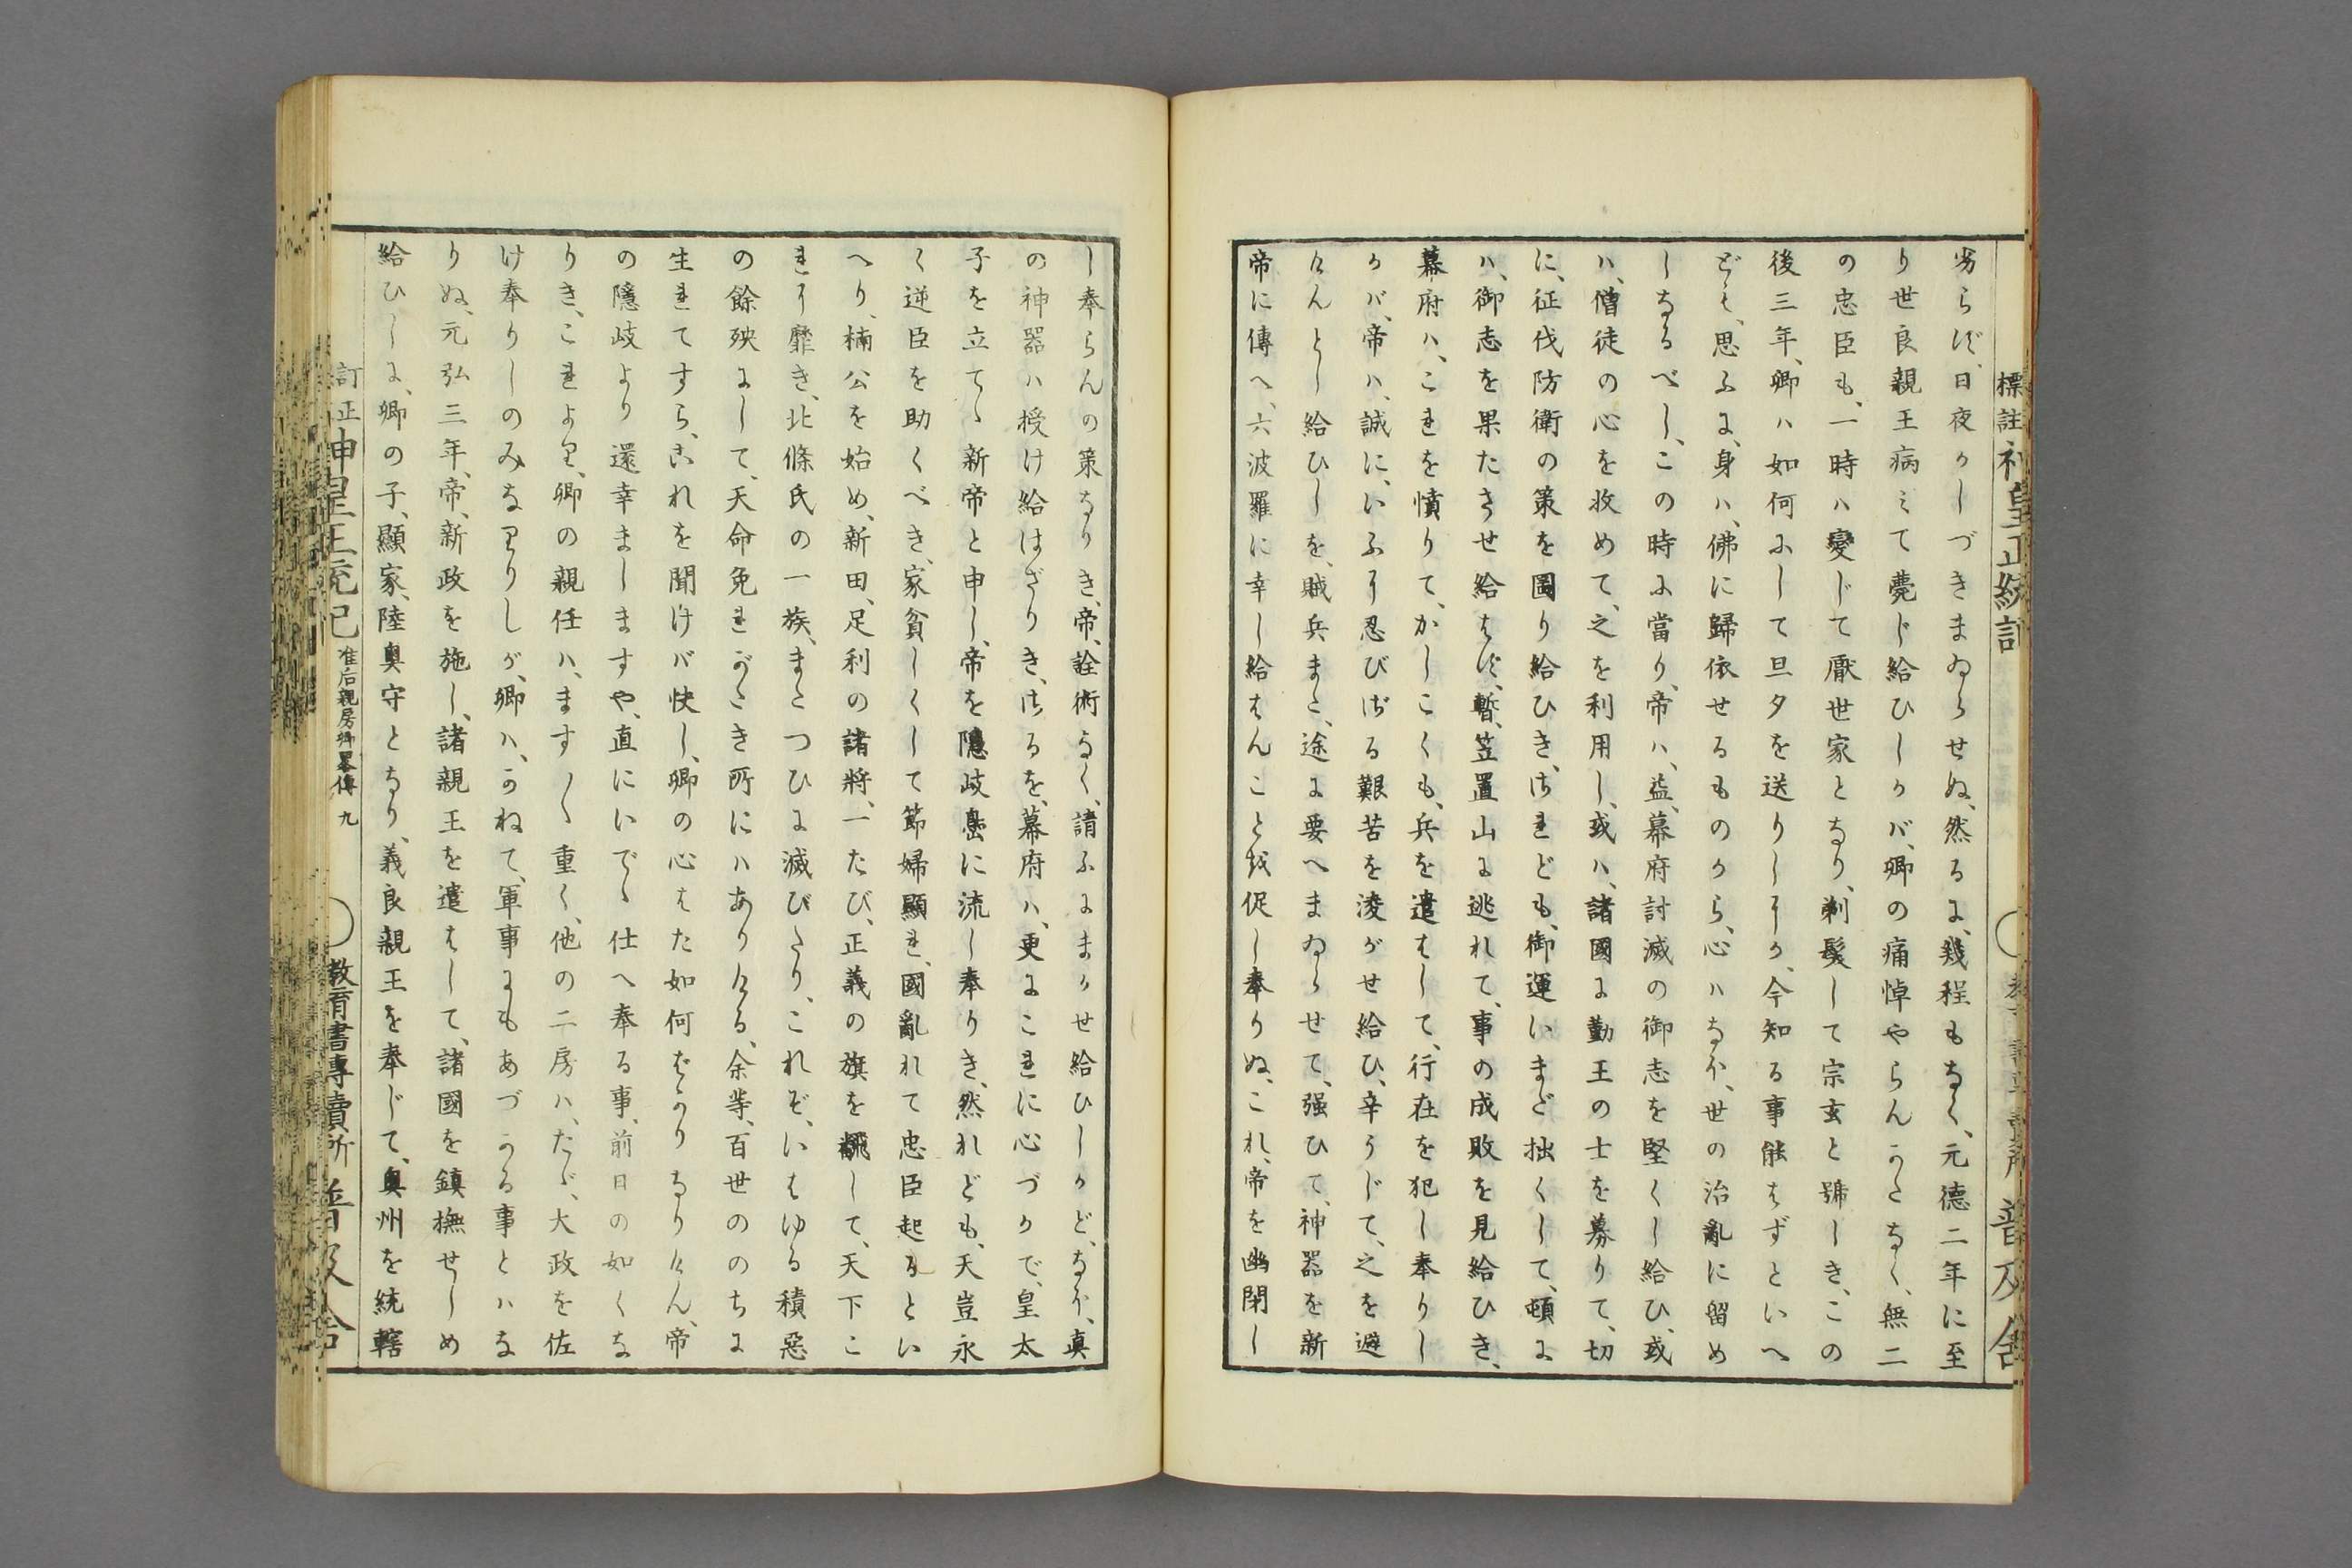 標註神皇正統記 普及舍
劣らず、日夜かしづきまゐらせぬ、然るに、幾程もなく、元德二年に至
り世良親王病みて薨じ給ひしかバ、卿の痛悼やらんかたなく、無二
の忠臣も、一時ハ變じて厭世家となり、剃髮して宗玄と號しき、この
後三年、卿ハ如何にして旦夕を送りしにか、今知る事能はずといへ
ども、思ふに、身ハ、佛に歸依せるものから、心ハなほ、世の治亂に留め
しなるべし、この時に當り、帝ハ、益、幕府討滅の御志を堅くし給ひ、或
ハ、僧徒の心を收めて、之を利用し、或ハ、諸國に勤王の士を募りて、切
に、征伐防衛の策を圖り給ひき、されども、御運いまだ拙くして、頓に
ハ、御志を果たさせ給はず、暫、笠置山に逃れて、事の成敗を見給ひき、
幕府ハ、これを憤りて、かしこくも、兵を遣はして、行在を犯し奉りし
かバ、帝ハ、誠に、いふに忍びざる艱苦を凌がせ給ひ、辛うじて、之を避
けんとし給ひしを、賊兵また、途に要へまゐらせて、强ひて、神器を新
帝に傳へ、六波羅に幸し給はんことを促し奉りぬ、これ、帝を幽閉し
し奉らんの策なりき、帝、詮術なく、請ふにまかせ給ひしかど、なほ、眞
の神器ハ授け給はざりき、さるを、幕府ハ、更にこれに心づかで、皇太
子を立てゝ新帝と申し、帝を隱岐島に流し奉りき、然れども、天豈永
く逆臣を助くべき、家貧しくして節婦顯れ、國亂れて忠臣起るとい
へり、楠公を始め、新田、足利の諸將、一たび、正義の旗を飜して、天下こ
れに靡き、北條氏の一族、またつひに滅びたり、これぞ、いはゆる積惡
の餘殃にして、天命免れがたき所にハありける、余等、百世ののちに
生れてすら、これを聞けバ快し、卿の心はた如何ばかりなりけん、帝
の隱岐より還幸ましますや、直にいでゝ仕へ奉る事、前日の如くな
りき、これより、卿の親任ハ、ます〱重く、他の二房ハ、たゞ、大政を佐
け奉りしのみなりしが、卿ハ、かねて、軍事にもあづかる事とハな
りぬ、元弘三年、帝、新政を施し、諸親王を遣はして、諸國を鎭撫せしめ
給ひしに、卿の子、顯家、陸奧守となり、義良親王を奉じて、奧州を統轄
訂正神皇正統記 准后親房卿畧傳 九 教育書專賣所 普及舍